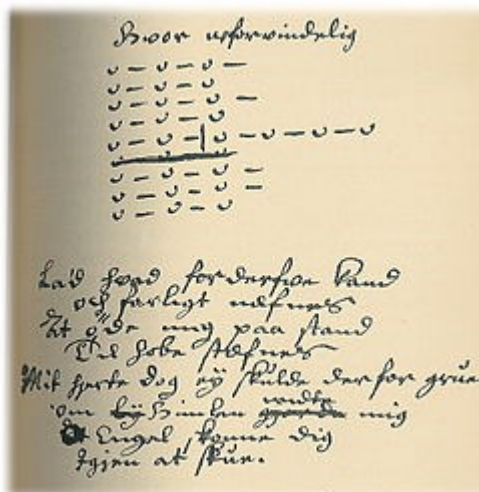 Hvor uforvindelig
Lad hvad forderfwe kand
och farligt nefnes
At öde mig paa stand
Til hobe stefnes
Mit hierte dog ey skulde der for grue
om Himlen mig
Engel, konne dig
Igien at skue.